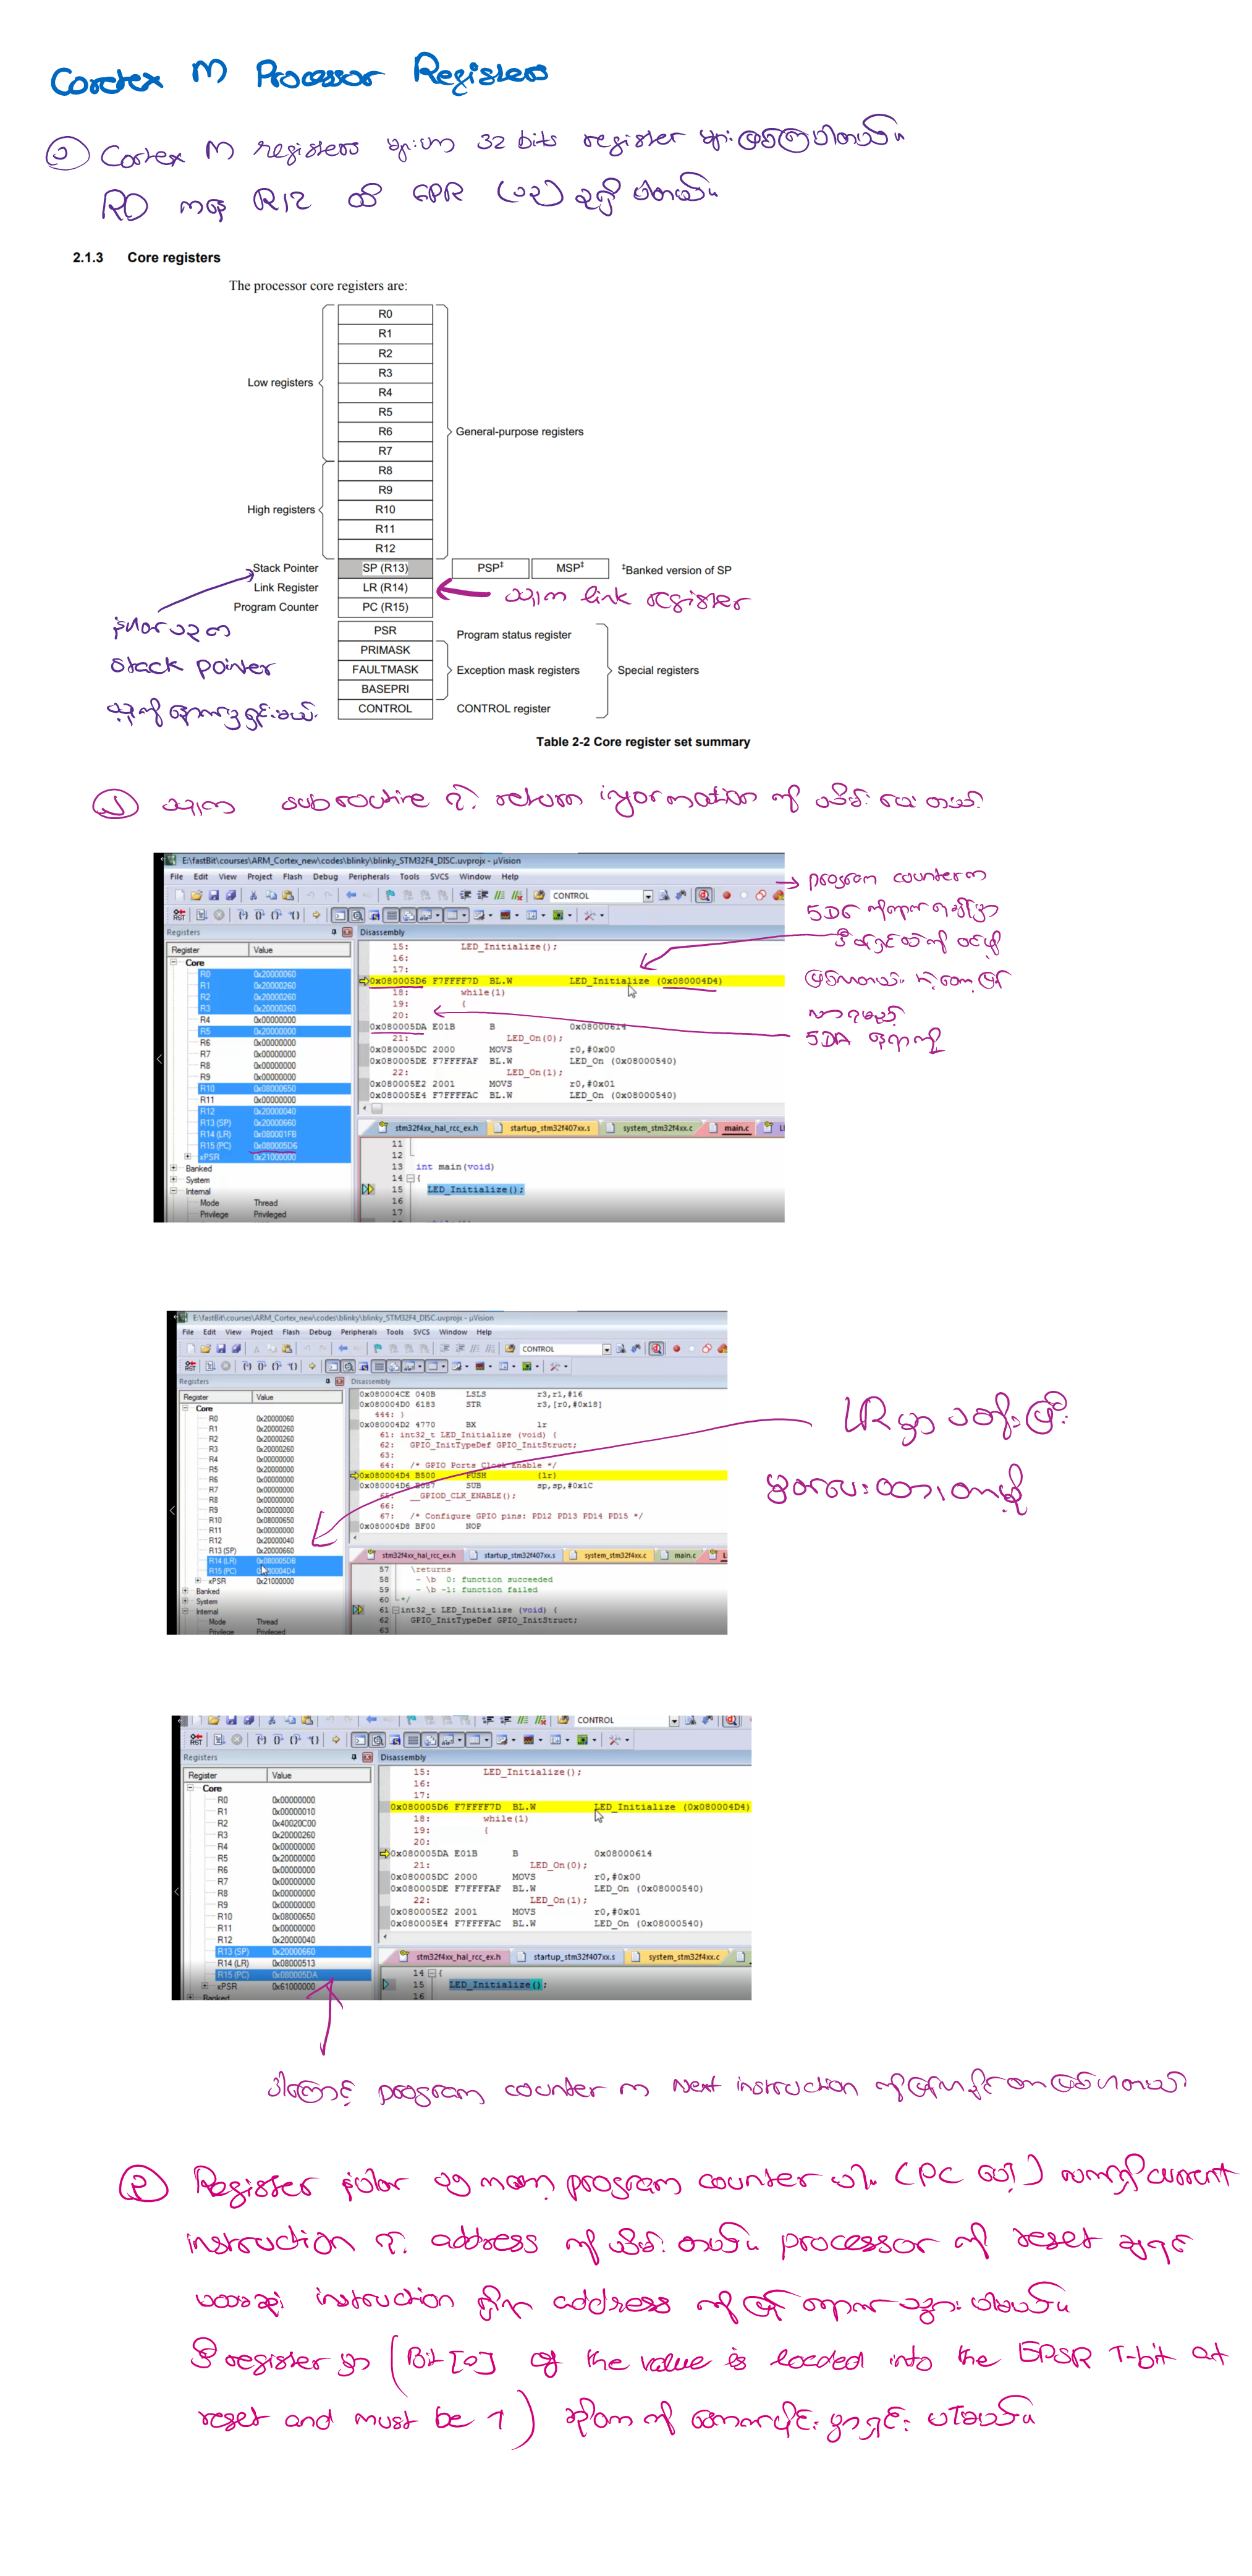 Cortex M Processor Registers
၁ Cortex M registers များဟာ 32 bits register များဖြစ်ကြပါတယ်။
R0 ကနေ R12 ထိ GPR (၁၃) ခုရှိ ပါတယ်။
2.1.3 Core registers
The processor core registers are:
R0
R1
R2
R3
Low registers
R4
R5
R6
General-purpose registers
R7
R8
R9
High registers
R10
R11
R12
Stack Pointer SP (R13) PSP‡ MSP‡ ‡Banked version of SP
Link Register LR (R14)
သူက link register
Program Counter PC (R15)
နံပါတ် ၁၃ က
stack pointer
သူ့ကို နောက်မှ ရှင်းမယ်.
PSR Program status register
PRIMASK
FAULTMASK Exception mask registers Special registers
BASEPRI
CONTROL CONTROL register
Table 2-2 Core register set summary
၂ သူက subroutine ရဲ့ return information ကို သိမ်း ပေး တယ်.
E:\fastBit\courses\ARM_Cortex_new\codes\blinky\blinky_STM32F4_DISC.uvprojx - µVision
File Edit View Project Flash Debug Peripherals Tools SVCS Window Help
CONTROL
Registers Disassembly
Register Value
Core
R0 0x20000060
R1 0x20000260
R2 0x20000260
R3 0x20000260
R4 0x00000000
R5 0x20000000
R6 0x00000000
R7 0x00000000
R8 0x00000000
R9 0x00000000
R10 0x08000650
R11 0x00000000
R12 0x20000040
R13 (SP) 0x20000660
R14 (LR) 0x080001FB
R15 (PC) 0x080005D6
xPSR 0x21000000
Banked
System
Internal
Mode Thread
Privilege Privileged
15: LED_Initialize();
16:
17:
0x080005D6 F7FFFF7D BL.W LED_Initialize (0x080004D4)
18: while(1)
19: {
20:
0x080005DA E01B B 0x08000614
21: LED_On(0);
0x080005DC 2000 MOVS r0,#0x00
0x080005DE F7FFFFAF BL.W LED_On (0x08000540)
22: LED_On(1);
0x080005E2 2001 MOVS r0,#0x01
0x080005E4 F7FFFFAC BL.W LED_On (0x08000540)
stm32f4xx_hal_rcc_ex.h startup_stm32f407xx.s system_stm32f4xx.c main.c
11
12
13 int main(void)
14 {
15 LED_Initialize();
16
17
program counter က
5D6
5DA နေရာကို
E:\fastBit\courses\ARM_Cortex_new\codes\blinky\blinky_STM32F4_DISC.uvprojx - µVision
File Edit View Project Flash Debug Peripherals Tools SVCS Window Help
CONTROL
Registers Disassembly
Register Value
Core
R0 0x20000060
R1 0x20000260
R2 0x20000260
R3 0x20000260
R4 0x00000000
R5 0x20000000
R6 0x00000000
R7 0x00000000
R8 0x00000000
R9 0x00000000
R10 0x08000650
R11 0x00000000
R12 0x20000040
R13 (SP) 0x20000660
R14 (LR) 0x080005DB
R15 (PC)
xPSR 0x21000000
Banked
System
Internal
Mode Thread
Privilege Privileged
0x080004CE 040B LSLS r3,r1,#16
0x080004D0 6183 STR r3,[r0,#0x18]
444: }
0x080004D2 4770 BX lr
61: int32_t LED_Initialize (void) {
62: GPIO_InitTypeDef GPIO_InitStruct;
63:
64: /* GPIO Ports Clock Enable */
0x080004D4 B500 PUSH {lr}
0x080004D6 B087 SUB sp,sp,#0x1C
65: __GPIOD_CLK_ENABLE();
66:
67: /* Configure GPIO pins: PD12 PD13 PD14 PD15 */
0x080004D8 BF00 NOP
stm32f4xx_hal_rcc_ex.h startup_stm32f407xx.s system_stm32f4xx.c main.c
57 \returns
58 - \b 0: function succeeded
59 - \b -1: function failed
60 */
61 int32_t LED_Initialize (void) {
62 GPIO_InitTypeDef GPIO_InitStruct;
63
LR မှာ
မှတ်ပေးထားတာမို့
CONTROL
Registers Disassembly
Register Value
Core
R0 0x00000000
R1 0x00000010
R2 0x40020C00
R3 0x20000260
R4 0x00000000
R5 0x20000000
R6 0x00000000
R7 0x00000000
R8 0x00000000
R9 0x00000000
R10 0x08000650
R11 0x00000000
R12 0x20000040
R13 (SP) 0x20000660
R14 (LR) 0x08000513
R15 (PC) 0x080005DA
xPSR 0x61000000
Banked
15: LED_Initialize();
16:
17:
0x080005D6 F7FFFF7D BL.W LED_Initialize (0x080004D4)
18: while(1)
19: {
20:
0x080005DA E01B B 0x08000614
21: LED_On(0);
0x080005DC 2000 MOVS r0,#0x00
0x080005DE F7FFFFAF BL.W LED_On (0x08000540)
22: LED_On(1);
0x080005E2 2001 MOVS r0,#0x01
0x080005E4 F7FFFFAC BL.W LED_On (0x08000540)
stm32f4xx_hal_rcc_ex.h startup_stm32f407xx.s system_stm32f4xx.c
14 {
15 LED_Initialize();
16
ဒါကြောင့် program counter က next instruction ကို
၃ Register နံပါတ် ၁၅ ကတော့ program counter ပါ။ (PC ပေါ့) သူက current
instruction ရဲ့ address ကို သိမ်း တယ်။ processor ကို reset ချရင်
ပထမဆုံး instruction ရှိရာ address ကို ပြန် ရောက် သွား ပါတယ်။
ဒီ register မှာ (Bit [0] of the value is loaded into the EPSR T-bit at
reset and must be 1) ဆိုတာ ကို အောက်ပိုင်း မှာရှင်း ပါမယ်။